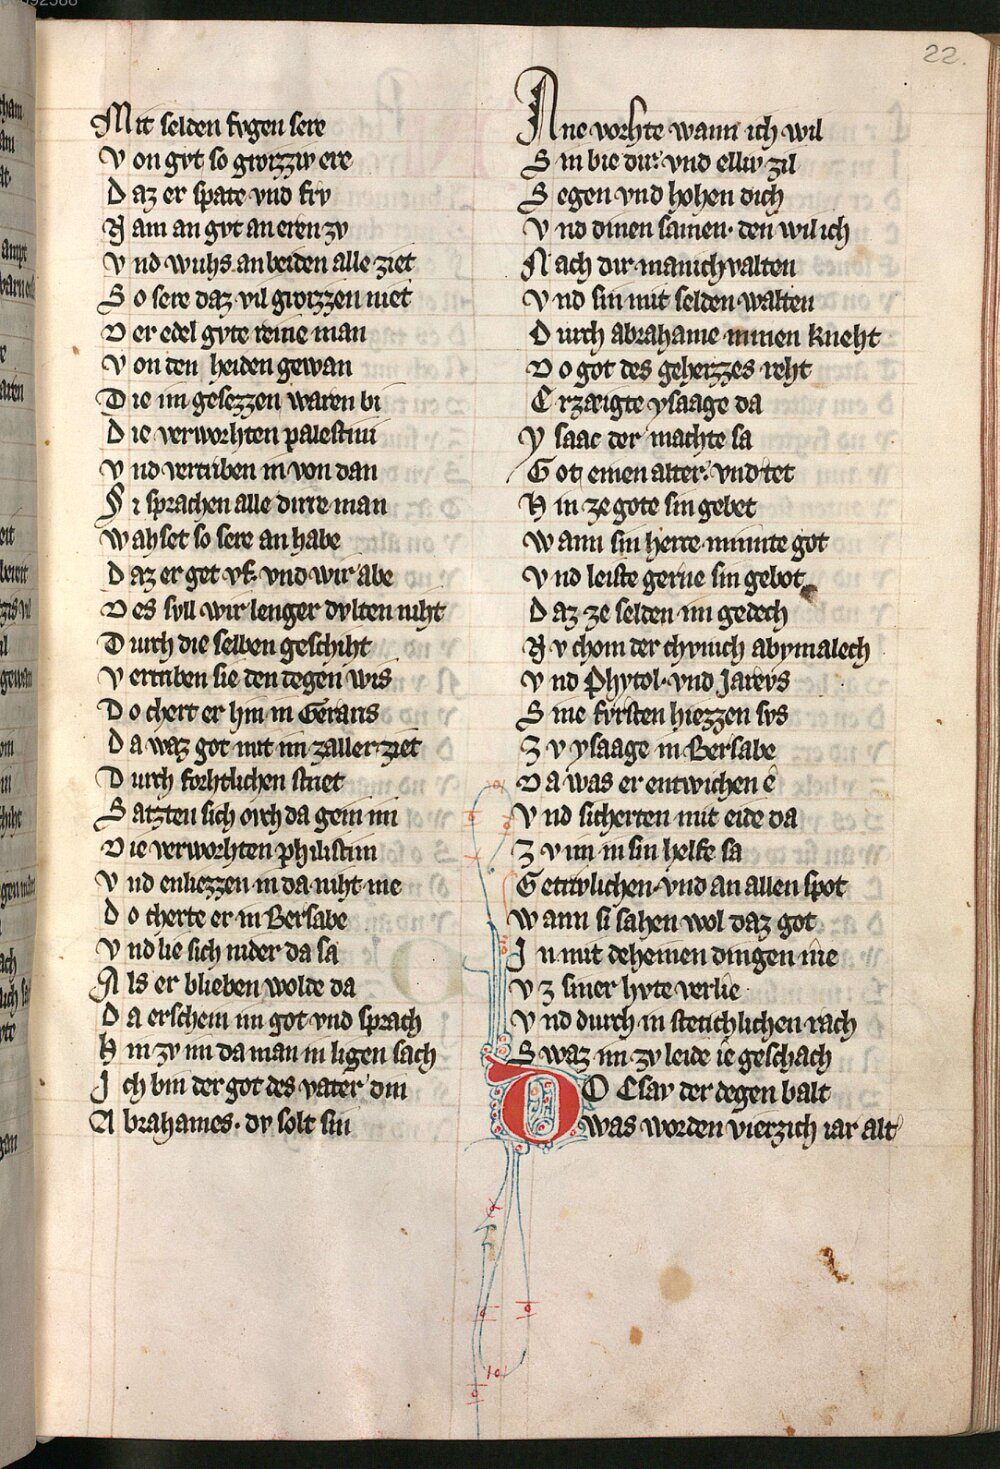 22.
Mit selden fvgen sere
Von gvt so grozziv ere
Daz er spate vnd frv
Nam an gvt an eren zv
Vnd wuhs an beiden alle ziet
So sere daz vil grozzen niet
Der edel gvte reine man
Von den heiden gewan
Die im gesezzen waren bi
Die verworhten palestini
Vnd vertriben in von dan
Si sprachen alle dirre man
Wahset so sere an habe
Daz er get vf. vnd wir abe
Des svll wir lenger dvlten niht
Durch die selben geschiht
Vertriben sie den degen wis
Do chert er hin in Geraris
Da waz got mit im zaller ziet
Durch forhtlichen striet
Satzten sich ovch da gein im
Die verworhten philistim
Vnd enliezzen in da niht me
Do cherte er in Bersabe
Vnd lie sich nider da sa
Als er blieben wolde da
Da erschein im got vnd sprach
Hin zv im da man in ligen sach
Ich bin der got des vater din
Abrahames. dv solt sin
Ane vorhte wann ich wil
Sin bie dir. vnd elliv zil
Segen vnd hohen dich
Vnd dinen samen. den wil ich
Nach dir manichvalten
Vnd sin mit selden walten
Durch abrahame minen kneht
Do got des geheizzes reht
Erzaigte ysaage da
Ysaac der machte sa
Got einen alter. vnd tet
Hin ze gote sin gebet
Wann sin herce minnte got
Vnd leiste gerne sin gebot
Daz ze selden im gedech
Nv chom der chvnich abymalech
Vnd Phytol. vnd Jarevs
Sine fvrsten hiezzen svs
Zv ysaage in Bersabe
Da was er entwichen ê
Vnd sicherten mit eide da
Zv im in sin helfe sa
Getrivlichen. vnd an allen spot
Wann si sahen wol daz got
In mit deheinen dingen nie
Vz siner hvte verlie
Vnd durch in stetichlichen rach
Swaz im zv leide ie geschach
DO Esav der degen balt
Was worden vierzich iar alt